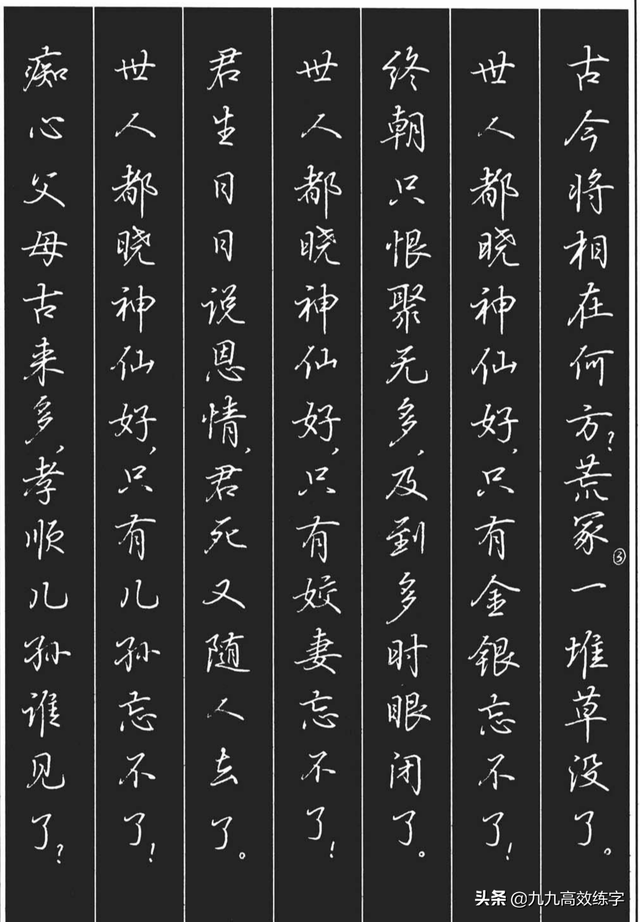 古今将相在何方?荒冢③一堆草没了。
世人都晓神仙好,只有金银忘不了!
终朝只恨聚无多,及到多时眼闭了。
世人都晓神仙好,只有姣妻忘不了!
君生日日说恩情,君死又随人去了。
世人都晓神仙好,只有儿孙忘不了!
痴心父母古来多,孝顺儿孙谁见了?
头条 @九九高效练字